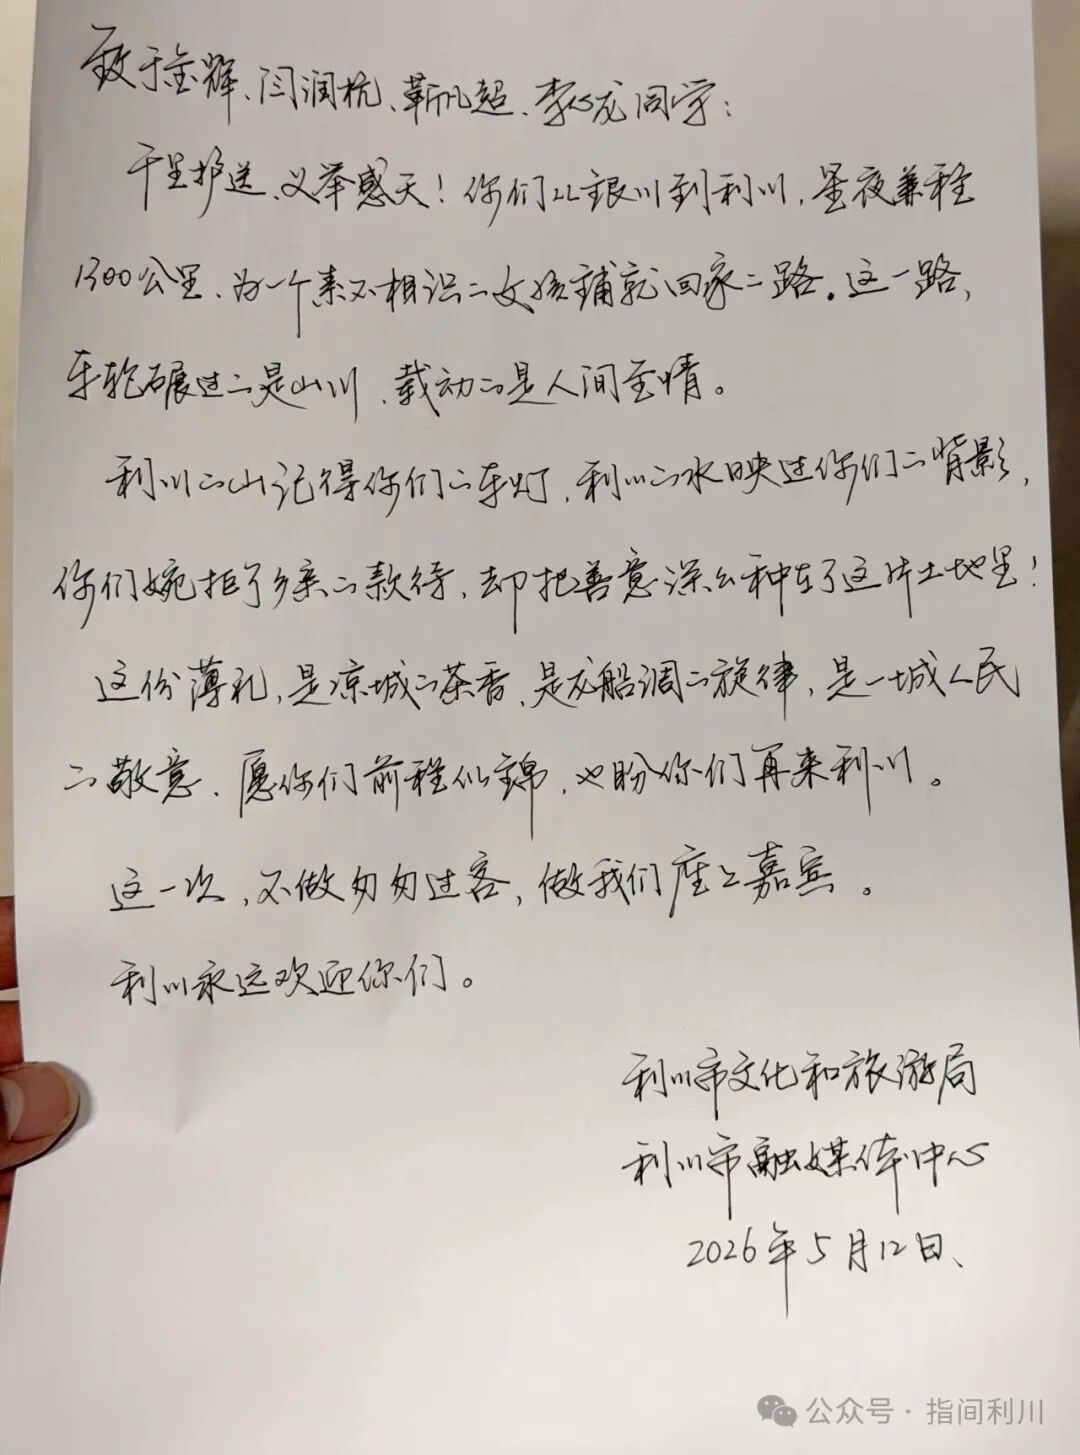 致于金辉、闫润杭、靳帆超、李心龙同学：
千里护送、义举感天！你们从银川到利川，星夜兼程
1300公里、为一个素不相识的女孩铺就回家的路。这一路，
车轮碾过的是山川、载动的是人间至情。
利川的山记得你们的车灯，利川的水映过你们的背影，
你们婉拒了乡亲的款待，却把善意深深种在了这片土地里！
这份薄礼，是凉城的茶香，是龙船调的旋律，是一城人民
的敬意、愿你们前程似锦，也盼你们再来利川。
这一次，不做匆匆过客，做我们座上嘉宾。
利川永远欢迎你们。
利川市文化和旅游局
利川市融媒体中心
2026年5月12日、
公众号·指间利川